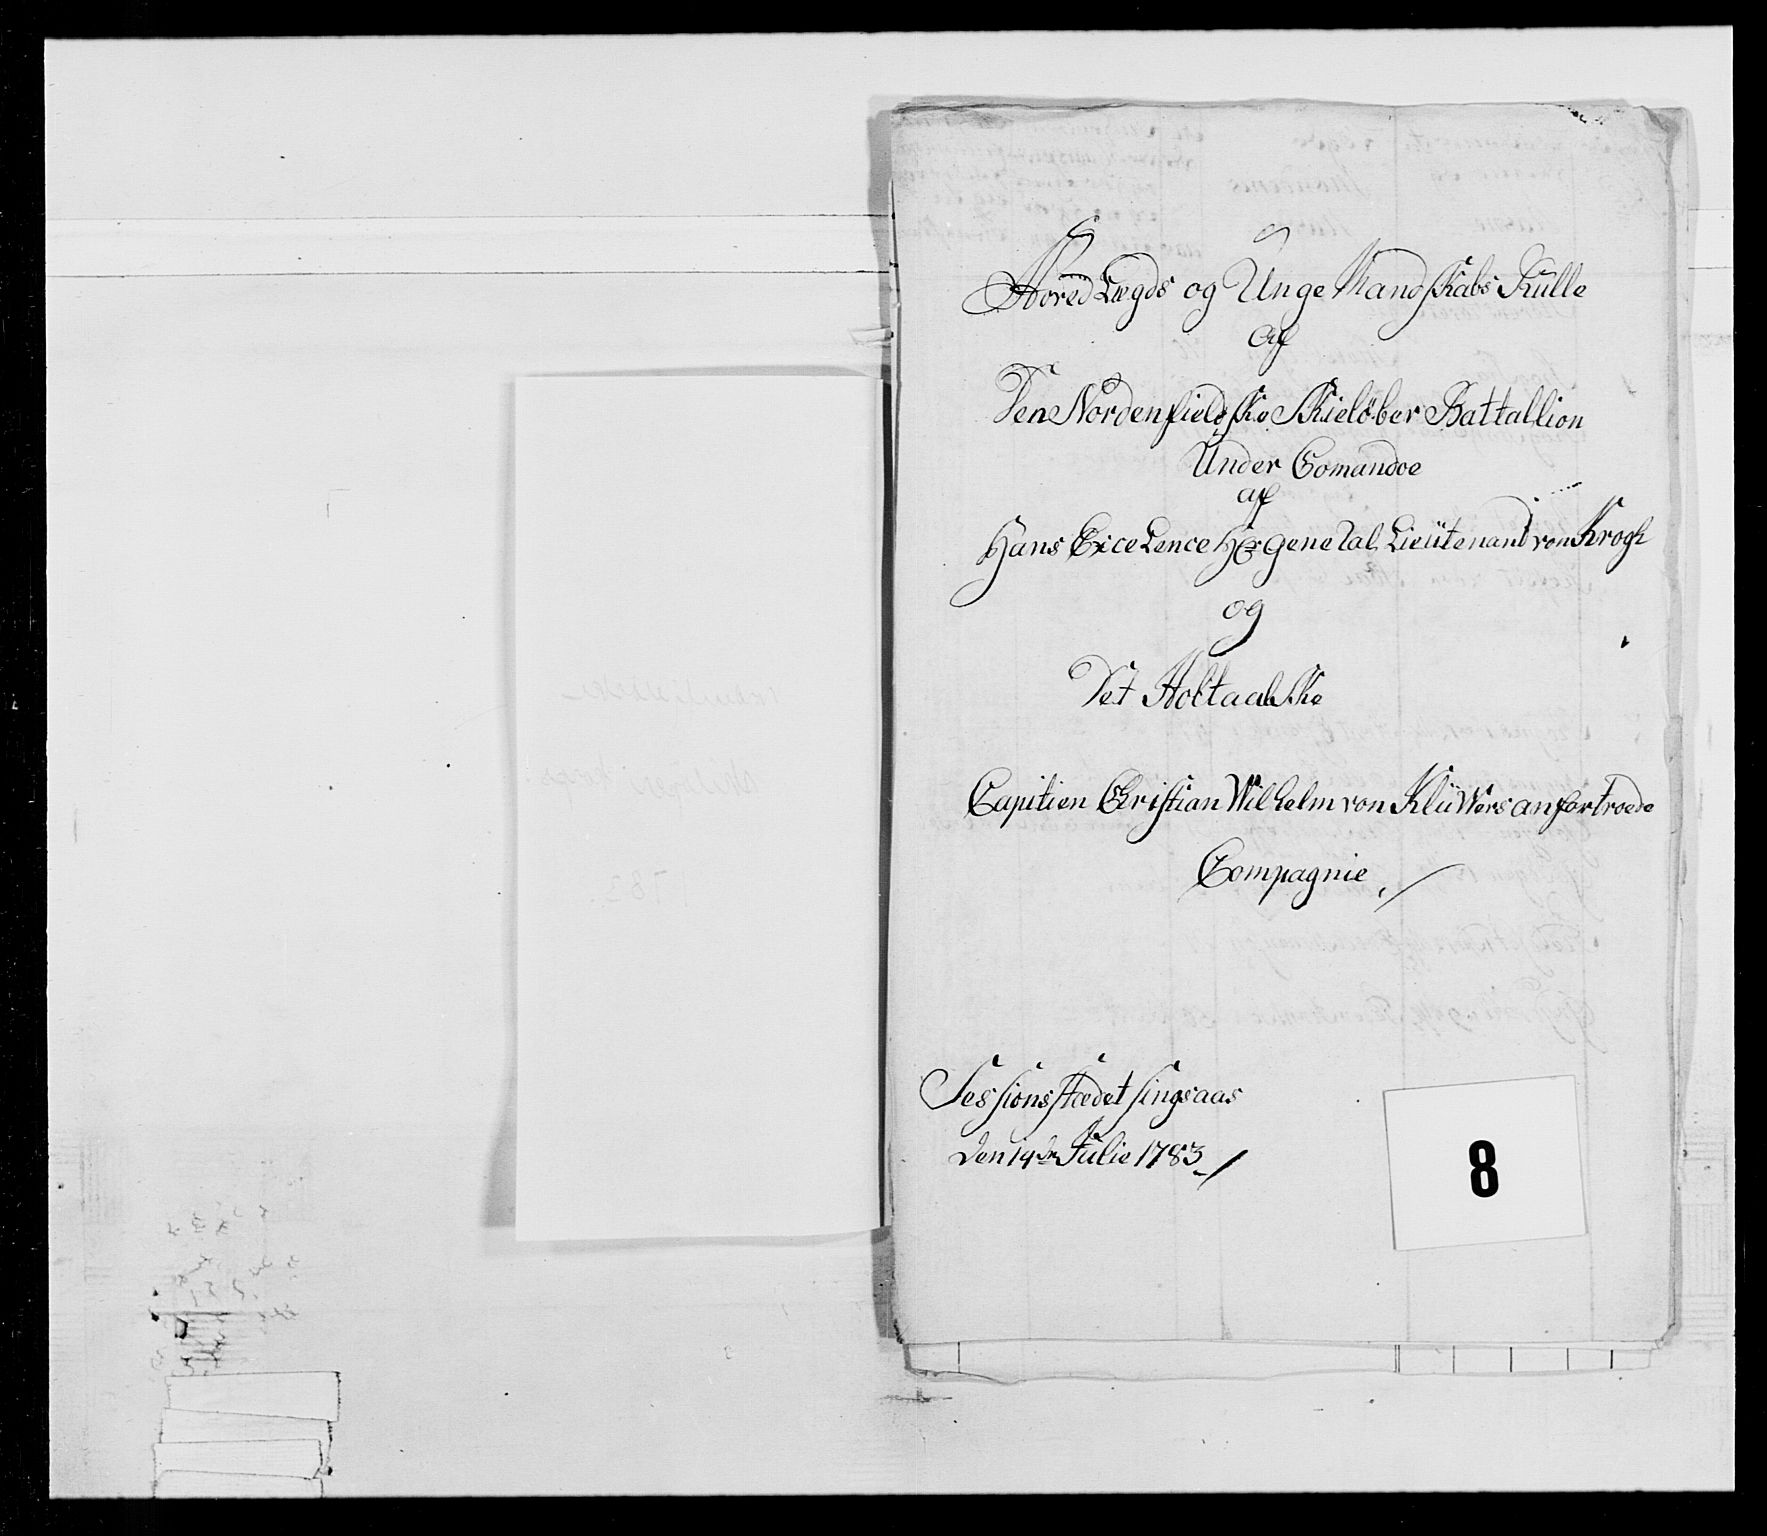 Hoved Lægds og Unge Mandskabs Rulle
af
Den Nordenfieldske Skielöber Battallion
Under Comandoe
af
Hans ExceLence Hr General Lieütenand von Krogh
og
Det Holtaalske
Capitien Christian Wilhelm von Klüwers anfortroede
Compagnie
Sessions stædet Singsaas
den 14de Julie 1783
8